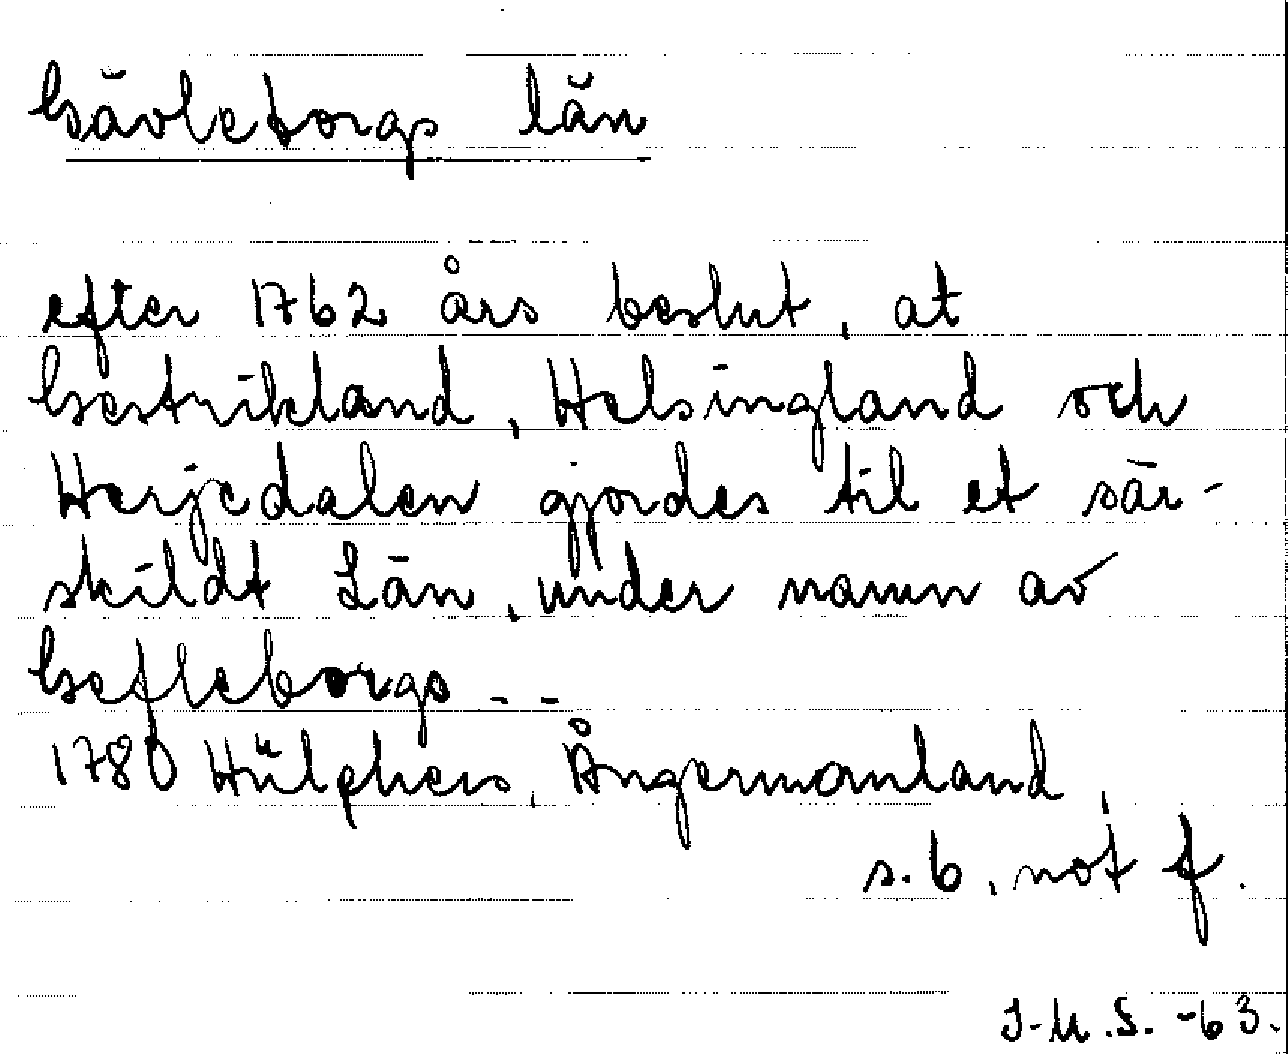 Gävleborgs län
efter 1762 års beslut, at
Gestrikland, Helsingland och
Herjedalen gjordes til et sär-
skildt Län, under namn av
Gefleborgs - -
1780 Hülphers, Ångermanland,
s. 6, not f.
I.M.S. -63.